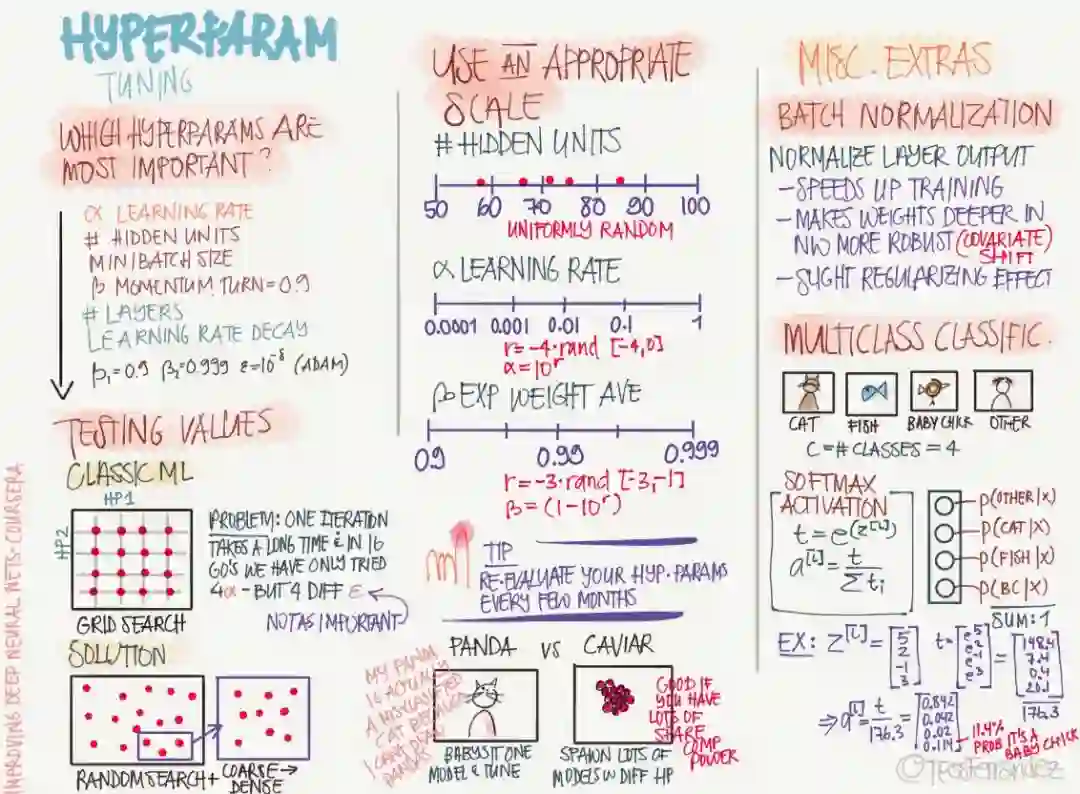 HYPERPARAM
TUNING
WHICH HYPERPARAMS ARE
MOST IMPORTANT?
α LEARNING RATE
# HIDDEN UNITS
MINIBATCH SIZE
β MOMENTUM TURN = 0.9
# LAYERS
LEARNING RATE DECAY
β₁=0.9 β₂=0.999 ε=10⁻⁸ (ADAM)
TESTING VALUES
CLASSIC ML
HP1
HP2
GRID SEARCH
PROBLEM: ONE ITERATION
TAKES A LONG TIME & IN 16
GO'S WE HAVE ONLY TRIED
4α - BUT 4 DIFF ε
NOT AS IMPORTANT
SOLUTION
RANDOM SEARCH +
COARSE →
DENSE
IMPROVING DEEP NEURAL NETS - COURSERA
USE AN APPROPRIATE
SCALE
# HIDDEN UNITS
50 60 70 80 90 100
UNIFORMLY RANDOM
α LEARNING RATE
0.0001 0.001 0.01 0.1 1
r = -4·rand [-4,0]
α = 10ʳ
β EXP WEIGHT AVE
0.9 0.99 0.999
r = -3·rand [-3,-1]
β = (1-10ʳ)
TIP
RE-EVALUATE YOUR HYP. PARAMS
EVERY FEW MONTHS
PANDA VS CAVIAR
MY PANDA
IS ACTUALLY
A MISCLASSIFIED
CAT BECAUSE
I CAN'T DRAW
PANDAS
BABYSIT ONE
MODEL & TUNE
GOOD IF
YOU HAVE
LOTS OF
SPARE
COMP
POWER
SPAWN LOTS OF
MODELS W DIFF HP
MISC. EXTRAS
BATCH NORMALIZATION
NORMALIZE LAYER OUTPUT
- SPEEDS UP TRAINING
- MAKES WEIGHTS DEEPER IN
NW MORE ROBUST (COVARIATE)
SHIFT
- SLIGHT REGULARIZING EFFECT
MULTICLASS CLASSIFIC.
CAT FISH BABY CHICK OTHER
C = # CLASSES = 4
SOFTMAX
ACTIVATION
t = e^(z^[L])
a^[L] = t / Σ tᵢ
p(OTHER|X)
p(CAT|X)
p(FISH|X)
p(BC|X)
SUM: 1
EX: z^[L] = [5 2 -1 3] t = [e⁵ e² e⁻¹ e³] = [148.4 7.4 0.4 20.1]
176.3
⇒ a^[L] = t / 176.3 = [0.842 0.042 0.02 0.114]
11.4%
PROB IT'S A
BABY CHICK